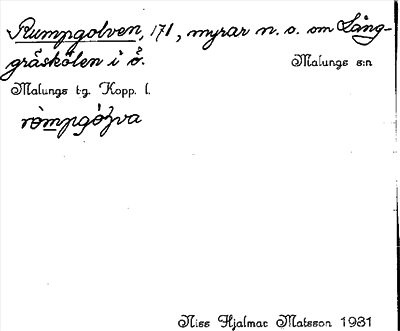 Rumpgolven, 171, myrar n. o. om Lång-
gråskölen i ö. Malungs s:n
Malungs tg. Kopp. l.
ròmpgóɂva
Nils Hjalmar Matsson 1931